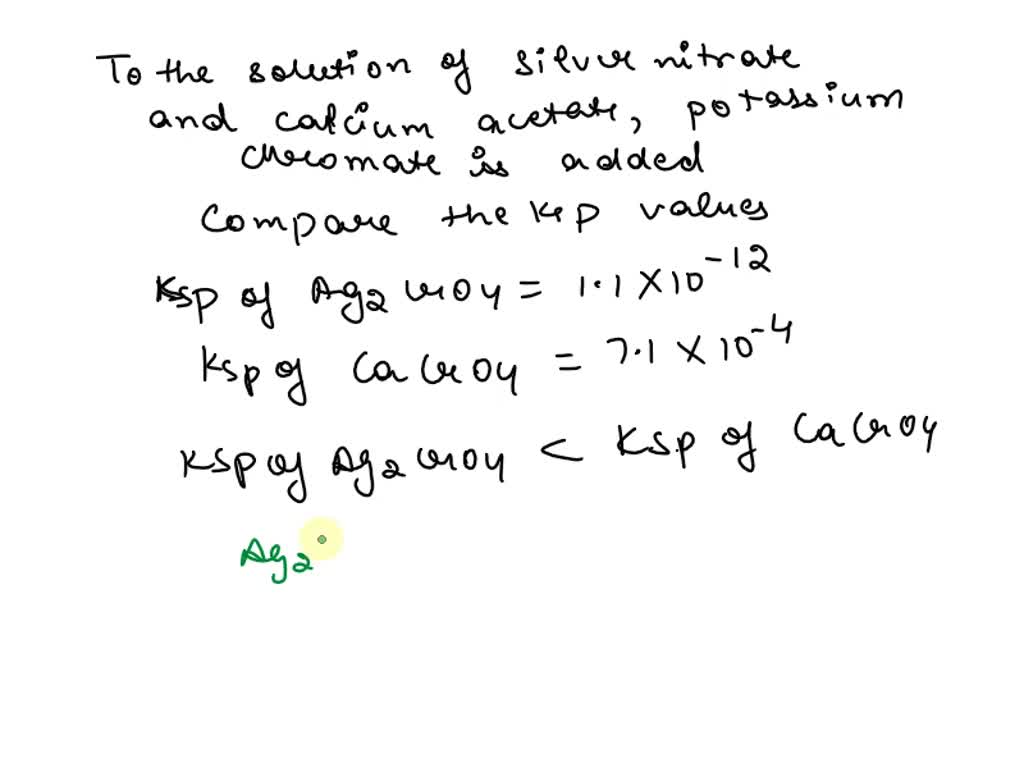 To the solution of silver nitrate
and calcium acetate, potassium
chromate is added
Compare the Ksp values
Ksp of Ag2 CrO4 = 1.1 X 10-12
Ksp of Ca CrO4 = 7.1 X 10-4
Ksp of Ag2 CrO4 < Ksp of Ca CrO4
Ag2